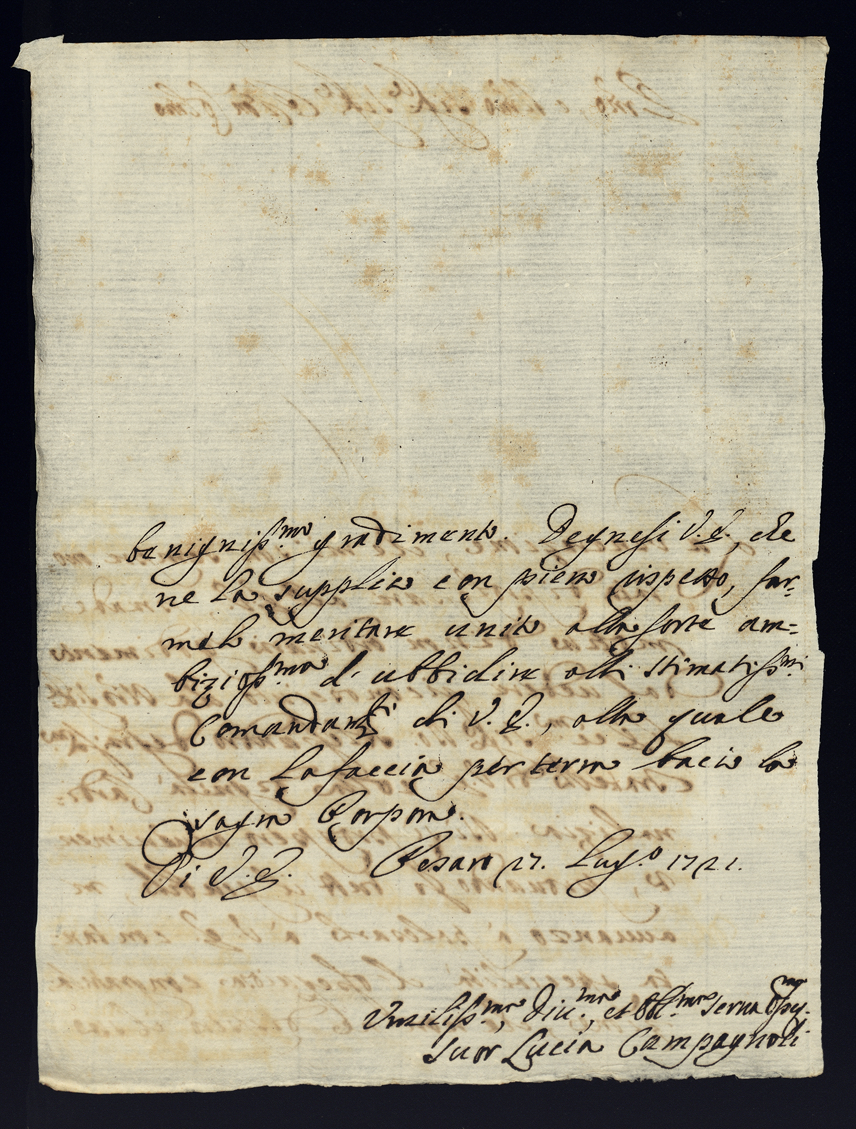 benigniss.mo gradimento. Degnesi V.E., che
ne la supplico con pieno rispetto, far-
melo meritare unito alla sorte am-
biziosiss.ma d'ubbidire alli stimatiss.mi
Comandanti di V.E., alla quale
con la faccia per terra bacio la
sagra Porpora.
Di V.E. Pesaro 27. Lug.o 1721.
Umiliss.ma, Div.ma, et Obl.ma serva Oss.ma
Suor Lucia Campagnoli